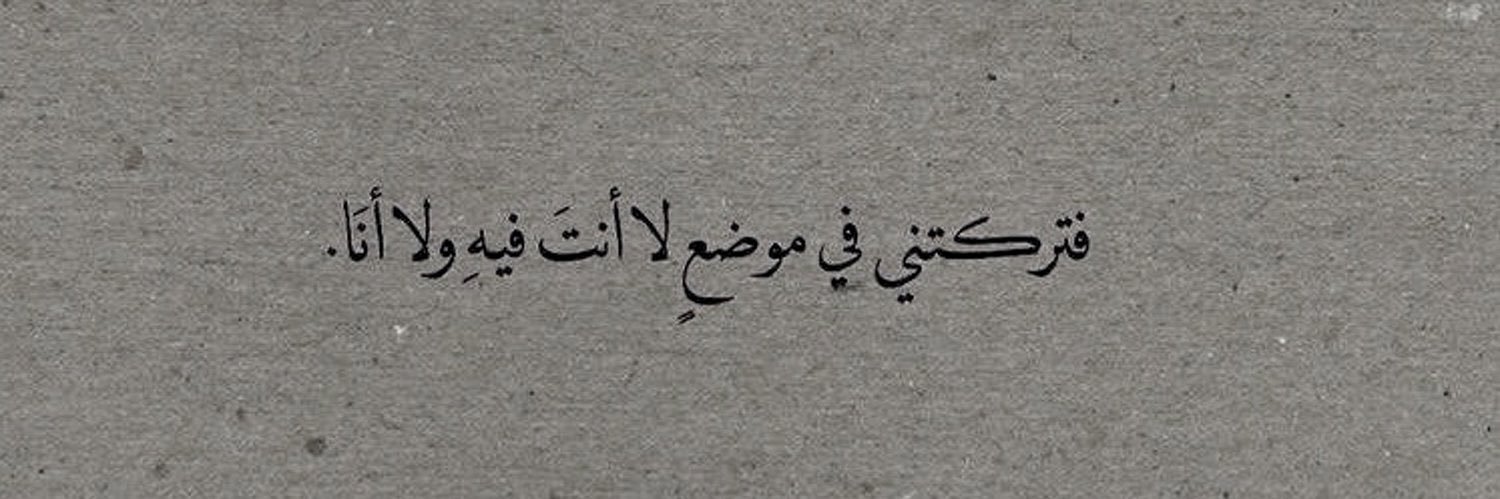 فتركتني في موضعٍ لا أنتَ فيهِ ولا أنَا.